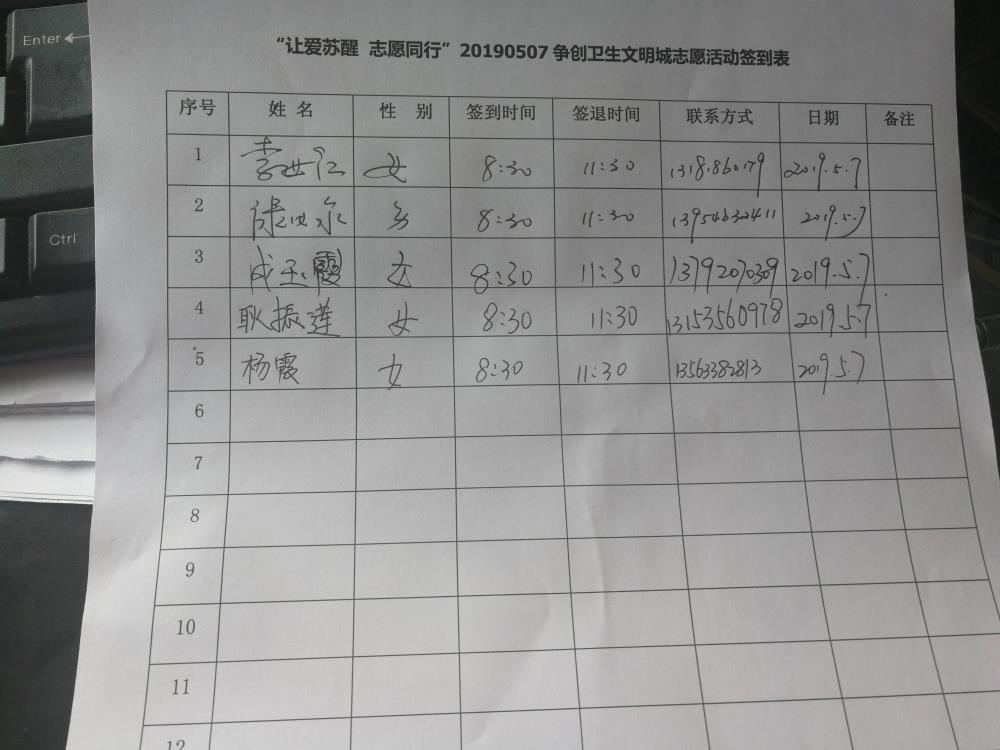 Enter
Ctrl
“让爱苏醒 志愿同行”20190507争创卫生文明城志愿活动签到表
序号 姓名 性别 签到时间 签退时间 联系方式 日期 备注
1 女 8:30 11:30 2019.5.7
2 8:30 11:30 13954632411 2019.5.7
3 成玉霞 女 8:30 11:30 13792070309 2019.5.7
4 耿振莲 女 8:30 11:30 13153560978 2019.5.7
5 杨霞 女 8:30 11:30 13563382813 2019.5.7
6
7
8
9
10
11
12